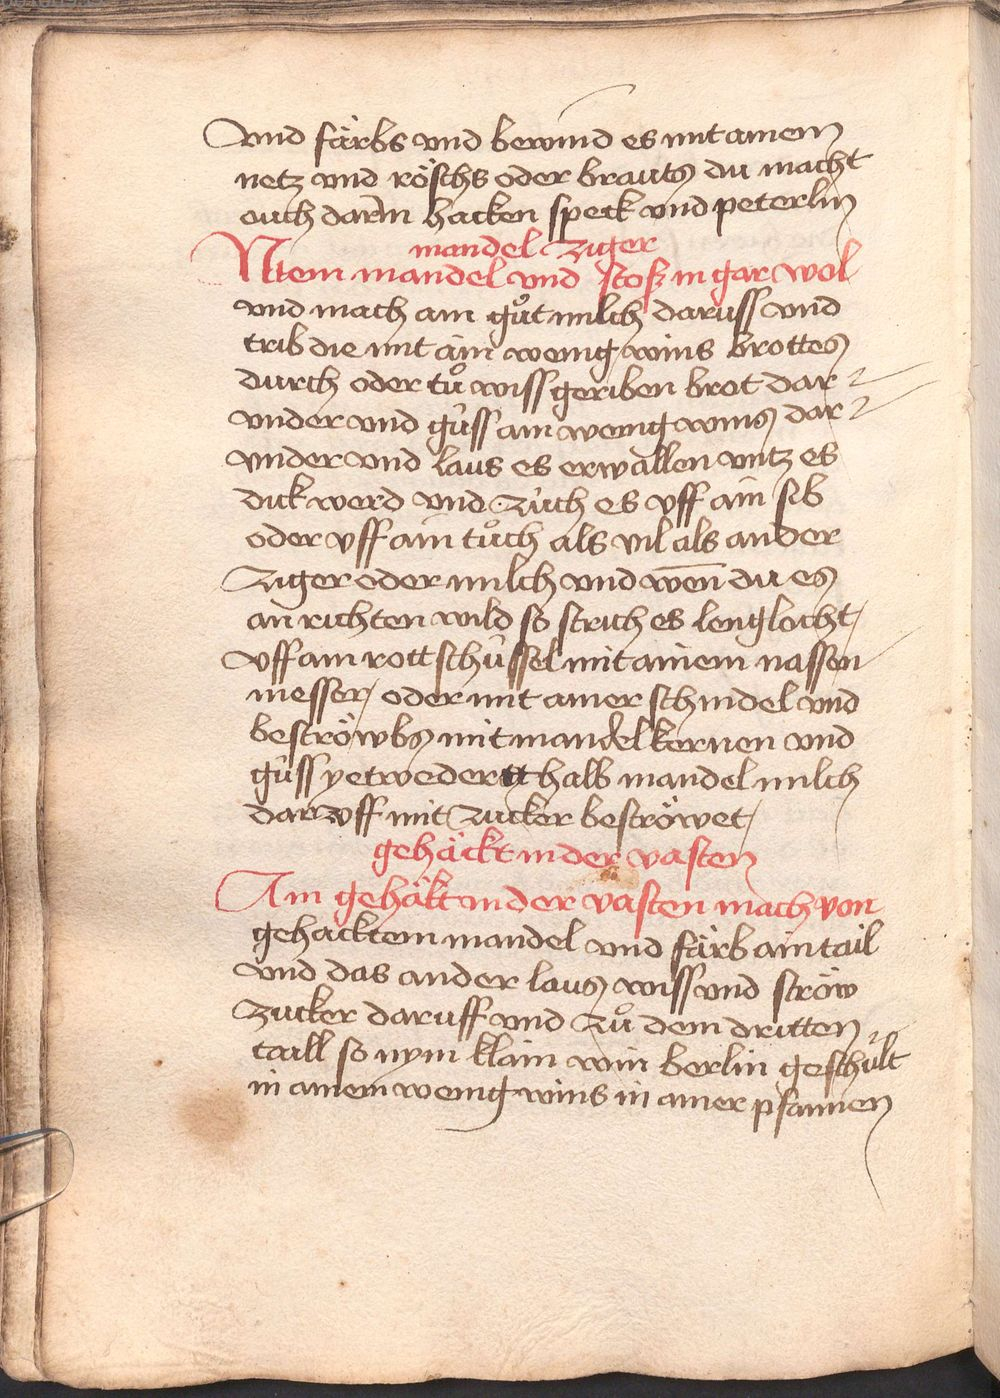 vnd färbs vnd bewind es mit ainem
netz vnd röschs oder brauts du macht
ouch darin hacken speck vnd peterlin
mandel ziger
Niem mandel vnd stosz in gar wol
vnd mach ain gůt milch daruss vnd
trib die mit ain wenig wins brottes
durch oder tů wiss geriben brot dar
vnder vnd güss ain wenig wins dar
vnder vnd laus es erwallen vntz es
dick werd vnd züch es vff ain sib
oder vff ain tůch als vil als ander
ziger oder milch vnd wen̄ du es
an richten wild so strich es lenglocht
vff ain rott schüssel mit ainem nassen
messer / oder mit ainer schindel vnd
beströwbs mit mandelkernen vnd
güss yetwedert halb mandel milch
daruff mit zucker beströwet /
gehäckt in der vasten
Ain gehäkt in der vasten mach von
gehacktem mandel vnd färb ain tail
vnd das ander laus wiss vnd ströw
zucker daruff vnd zů dem dritten
taill so nym klain win berlin geschült
in ainem wenig wins in ainer pfannen